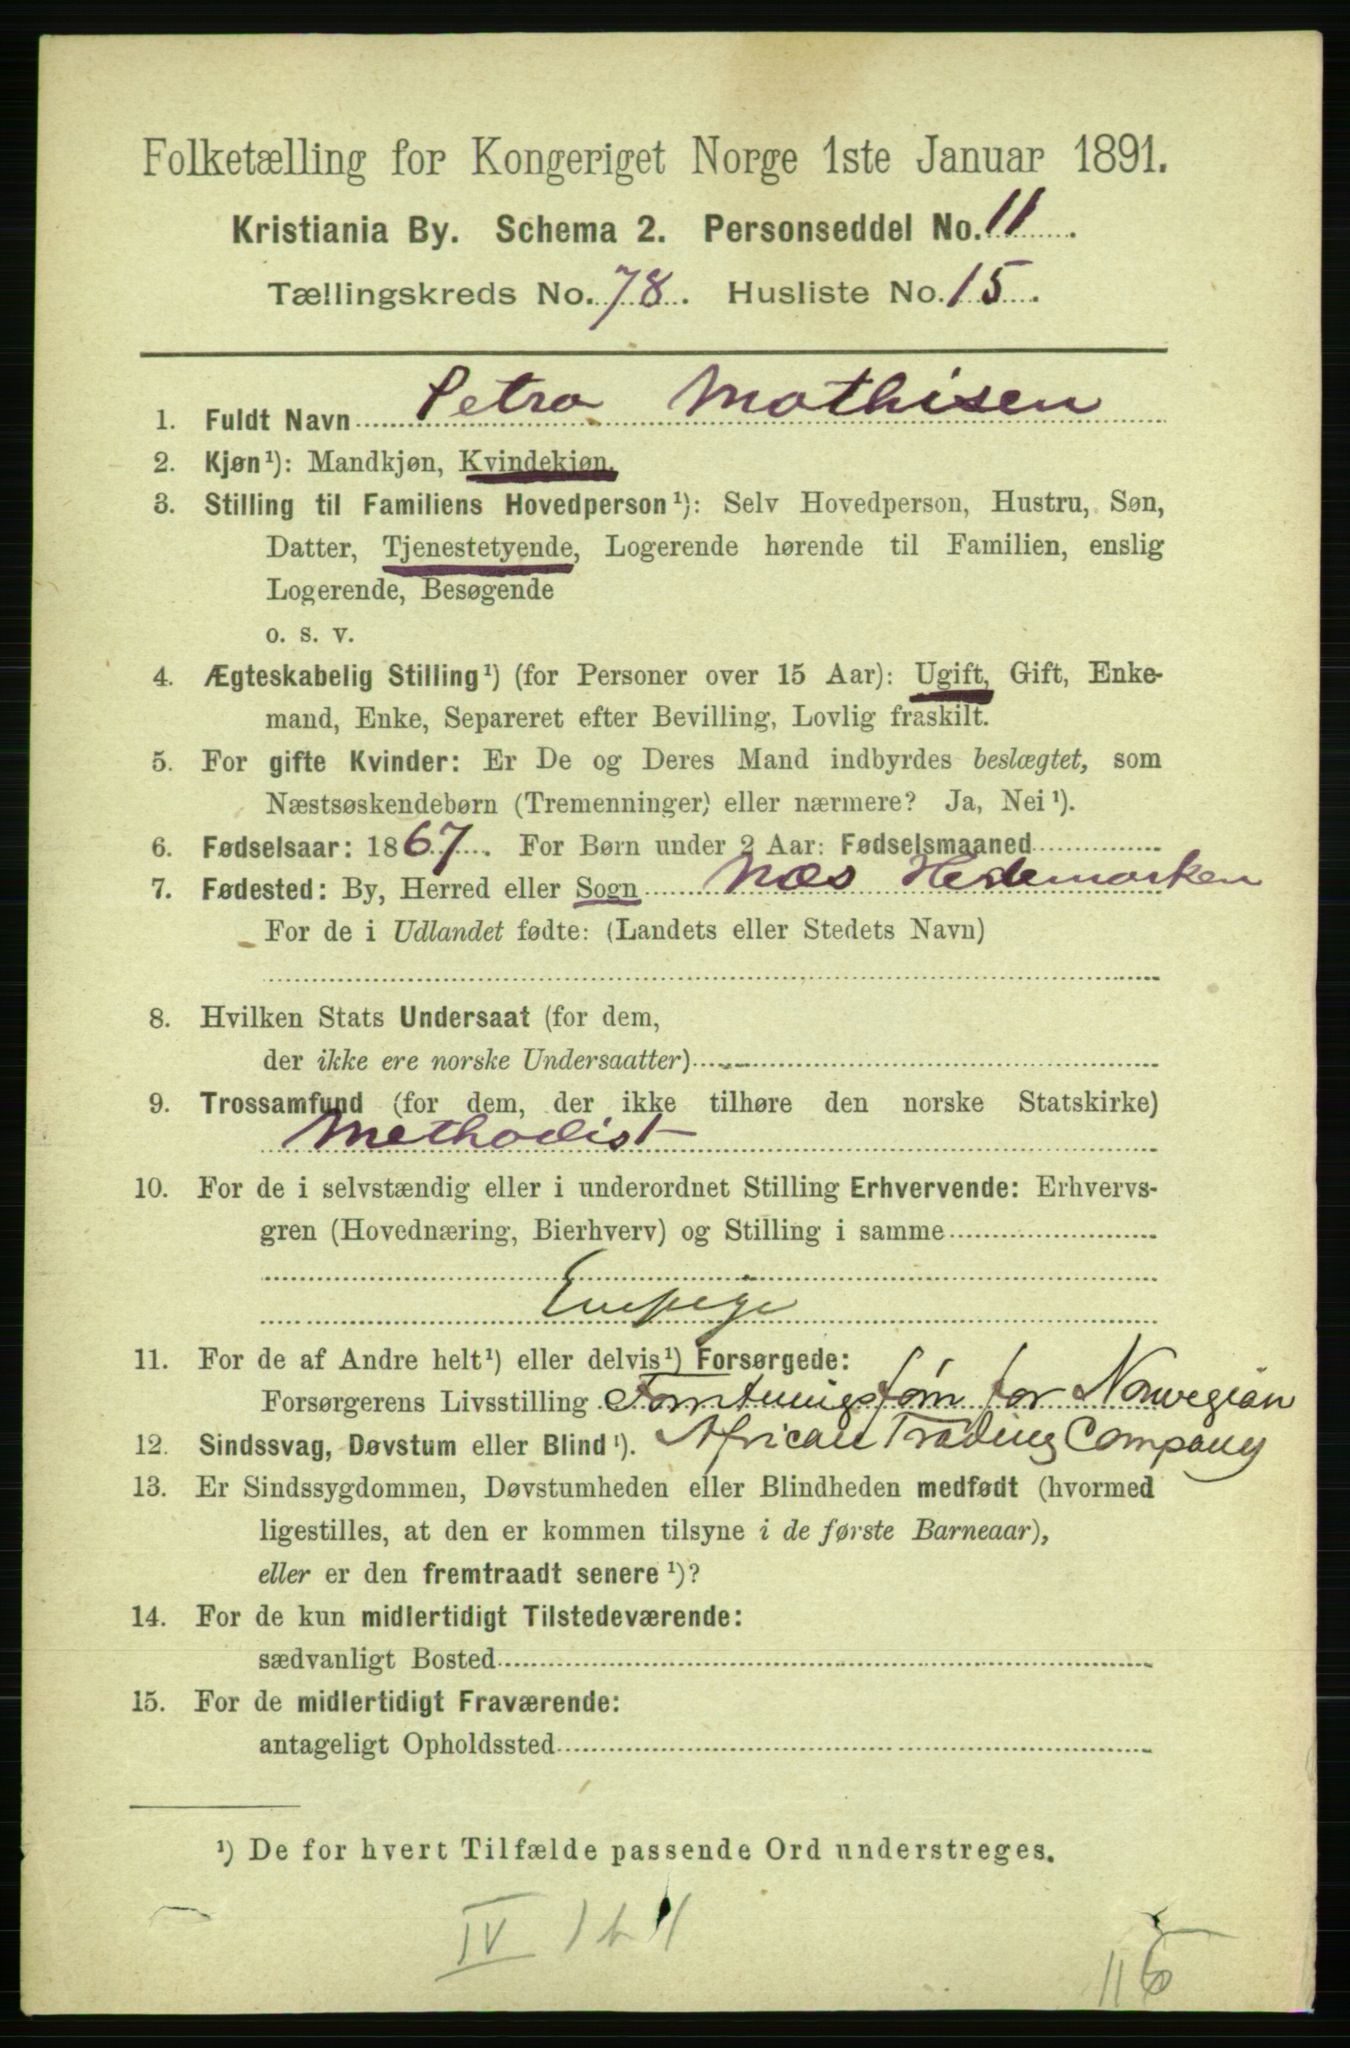 Folketælling for Kongeriget Norge 1ste Januar 1891.
Kristiania By. Schema 2. Personseddel No. 11.
Tællingskreds No. 78. Husliste No. 15.
1. Fuldt Navn Petra Mathisen
2. Kjøn¹): Mandkjøn, Kvindekjøn.
3. Stilling til Familiens Hovedperson¹): Selv Hovedperson, Hustru, Søn,
Datter, Tjenestetyende, Logerende hørende til Familien, enslig
Logerende, Besøgende
o. s. v.
4. Ægteskabelig Stilling¹) (for Personer over 15 Aar): Ugift, Gift, Enke-
mand, Enke, Separeret efter Bevilling, Lovlig fraskilt.
5. For gifte Kvinder: Er De og Deres Mand indbyrdes beslægtet, som
Næstsøskendebørn (Tremenninger) eller nærmere? Ja, Nei¹).
6. Fødselsaar: 1867. For Børn under 2 Aar: Fødselsmaaned
7. Fødested: By, Herred eller Sogn Næs Hedemarken
For de i Udlandet fødte: (Landets eller Stedets Navn)
8. Hvilken Stats Undersaat (for dem,
der ikke ere norske Undersaatter)
9. Trossamfund (for dem, der ikke tilhøre den norske Statskirke)
Methodist
10. For de i selvstændig eller i underordnet Stilling Erhvervende: Erhvervs-
gren (Hovednæring, Bierhverv) og Stilling i samme
Enepige
11. For de af Andre helt¹) eller delvis¹) Forsørgede:
Forsørgerens Livsstilling for Norwegian
African Trading Company
12. Sindssvag, Døvstum eller Blind¹).
13. Er Sindssygdommen, Døvstumheden eller Blindheden medfødt (hvormed
ligestilles, at den er kommen tilsyne i de første Barneaar),
eller er den fremtraadt senere¹)?
14. For de kun midlertidigt Tilstedeværende:
sædvanligt Bosted
15. For de midlertidigt Fraværende:
antageligt Opholdssted
¹) De for hvert Tilfælde passende Ord understreges.
IV
116